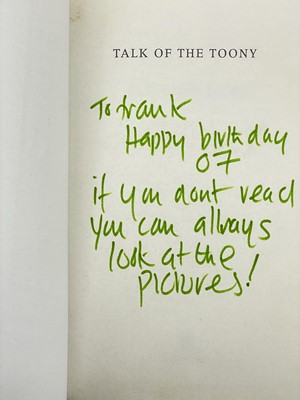 TALK OF THE TOONY
To frank
Happy birthday
07
if you dont read
you can allways
look at the
pictures!